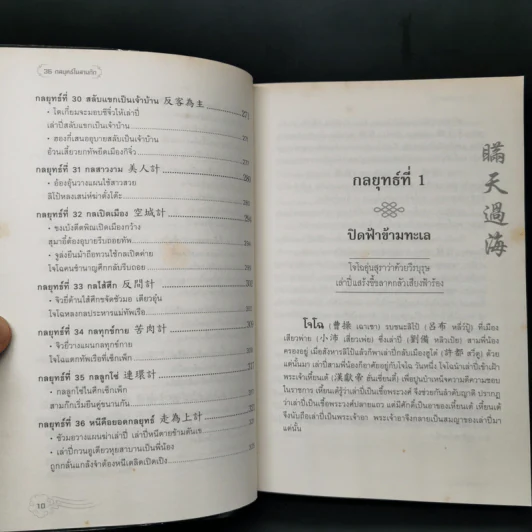 36 กลยุทธ์ในสามก๊ก
กลยุทธ์ที่ 30 สลับแขกเป็นเจ้าบ้าน 反客為主
• โตเกี๋ยมจะมอบชีจิ๋วให้เล่าปี่
เล่าปี่สลับแขกเป็นเจ้าบ้าน
• ฮองก๊เสนออุบายสลับเป็นเจ้าบ้าน
อ้วนเสี้ยวยกทัพยึดเมืองกิจิ๋ว
กลยุทธ์ที่ 31 กลสาวงาม 美人計
• อ้องอุ้นวางแผนใช้สาวสวย
ลิโป้หลงเสน่ห์ฆ่าตั๋งโต๊ะ
กลยุทธ์ที่ 32 กลเปิดเมือง 空城計
• ขงเบ้งดีดพิณเปิดเมืองกว้าง
สุมาอี้ต้องอุบายรีบถอยทัพ
• จูล่งยืนม้าถือทวนใช้กลเปิดค่าย
โจโฉคนชำนาญศึกกลับรีบถอย
กลยุทธ์ที่ 33 กลไส้ศึก 反間計
• จิวยี่ต้านไส้ศึกขจัดชัวมอ เตียวอุ๋น
โจโฉหลงกลประหารแม่ทัพเรือ
กลยุทธ์ที่ 34 กลทุกข์กาย 苦肉計
• จิวยี่วางแผนกลทุกข์กาย
โจโฉแตกทัพเรือที่เซ็กเพ็ก
กลยุทธ์ที่ 35 กลลูกโซ่ 連環計
• กลลูกโซ่ในศึกเซ็กเพ็ก
สามก๊กเริ่มยืนคู่ขนานกัน
กลยุทธ์ที่ 36 หนีคือยอดกลยุทธ์ 走為上計
• ชัวมอวางแผนฆ่าเล่าปี่ เล่าปี่หนีตายข้ามตันเข
• เล่าปี่กวนอูเตียวหุยสาบานเป็นพี่น้อง
ถูกกลั่นแกล้งจำต้องหนีเตลิดเปิดเปิง
10
瞞天過海
กลยุทธ์ที่ 1
ปิดฟ้าข้ามทะเล
โจโฉอุ่นสุราว่าด้วยวีรบุรุษ
เล่าปี่แสร้งขี้ขลาดกลัวเสียงฟ้าร้อง
โจโฉ (曹操 เฉาเชา) รบชนะลิโป้ (呂布 หลี่ว์ปู้) ที่เมือง
เสียวพ่าย (小沛 เสี่ยวเพ่ย) ซึ่งเล่าปี่ (劉備 หลิวเป้ย) สามพี่น้อง
ครองอยู่ เมื่อสังหารลิโป้แล้วก็พาเล่าปี่กลับเมืองฮูโต๋ (許都 สวี่ตู) ด้วย
แต่นั้นมา เล่าปี่สามพี่น้องก็อาศัยอยู่กับโจโฉ วันหนึ่ง โจโฉนำเล่าปี่เข้าเฝ้า
พระเจ้าเหี้ยนเต้ (漢獻帝 ฮั่นเซี่ยนตี้) เพื่อปูนบำเหน็จความดีความชอบ
ในราชการ เหี้ยนเต้รู้ว่าเล่าปี่เป็นเชื้อพระวงศ์ จึงช่วยกันลำดับญาติ ปรากฏ
ว่าเล่าปี่เป็นเชื้อพระวงศ์ปลายแถว แต่มีศักดิ์เป็นอาของเหี้ยนเต้ เหี้ยนเต้
จึงนับถือเล่าปี่เป็นพระเจ้าอา พระเจ้าอาจึงกลายเป็นสมญาของเล่าปี่มา
แต่นั้น